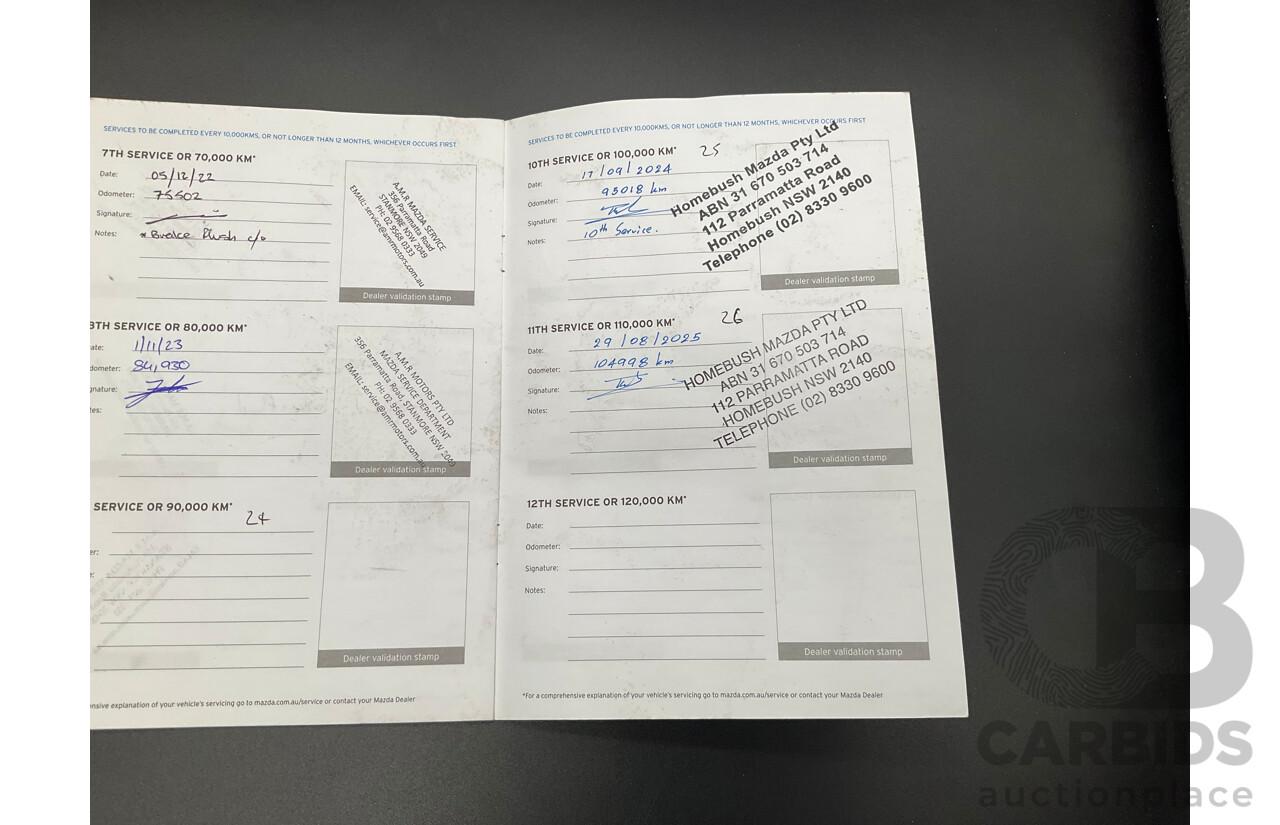 SERVICES TO BE COMPLETED EVERY 10,000KMS, OR NOT LONGER THAN 12 MONTHS, WHICHEVER OCCURS FIRST
7TH SERVICE OR 70,000 KM*
Date: 05/12/22
Odometer: 75502
Signature:
Notes: * Brake Flush c/o
A.M.R MAZDA SERVICE
356 Parramatta Road
STANMORE NSW 2049
PH: 02 9568 0333
EMAIL: service@amrmotors.com.au
Dealer validation stamp
8TH SERVICE OR 80,000 KM*
ate: 1/11/23
dometer: 84,930
gnature:
tes:
A.M.R MOTORS PTY LTD
MAZDA SERVICE DEPARTMENT
356 Parramatta Road, STANMORE NSW 2049
PH: 02 9568 0333
EMAIL: service@amrmotors.com.au
Dealer validation stamp
SERVICE OR 90,000 KM*
24
er:
e:
Dealer validation stamp
ensive explanation of your vehicle's servicing go to mazda.com.au/service or contact your Mazda Dealer
SERVICES TO BE COMPLETED EVERY 10,000KMS, OR NOT LONGER THAN 12 MONTHS, WHICHEVER OCCURS FIRST
10TH SERVICE OR 100,000 KM* 25
Date: 17/09/2024
Odometer: 95018 km
Signature:
Notes: 10th Service.
Homebush Mazda Pty Ltd
ABN 31 670 503 714
112 Parramatta Road
Homebush NSW 2140
Telephone (02) 8330 9600
Dealer validation stamp
11TH SERVICE OR 110,000 KM* 26
Date: 29/08/2025
Odometer: 104998 km
Signature:
Notes:
HOMEBUSH MAZDA PTY LTD
ABN 31 670 503 714
112 PARRAMATTA ROAD
HOMEBUSH NSW 2140
TELEPHONE (02) 8330 9600
Dealer validation stamp
12TH SERVICE OR 120,000 KM*
Date:
Odometer:
Signature:
Notes:
Dealer validation stamp
*For a comprehensive explanation of your vehicle's servicing go to mazda.com.au/service or contact your Mazda Dealer
CB
CARBIDS
auctionplace